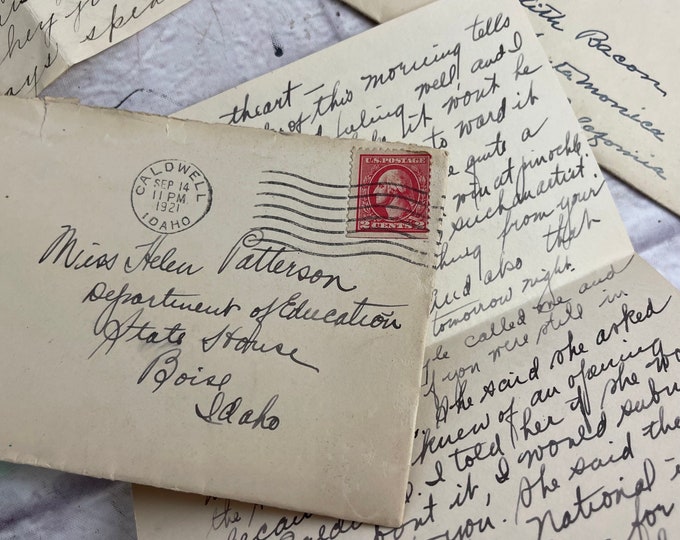 speak
CALDWELL
SEP 14
11 PM
1921
IDAHO
U.S. POSTAGE
2 CENTS 2
Miss Helen Patterson
Department of Education
State House
Boise
Idaho
theart —
of this morning tells
feeling well, and I
fit won't he
to ward it
quite a
win at pinochle
such an artist.
from your
and also that
tomorrow night.
called me and
if you were still in
She said she asked
knew of an opening
I told her if she
it, I would
you. She said the
National —
for
Bacon
Monica